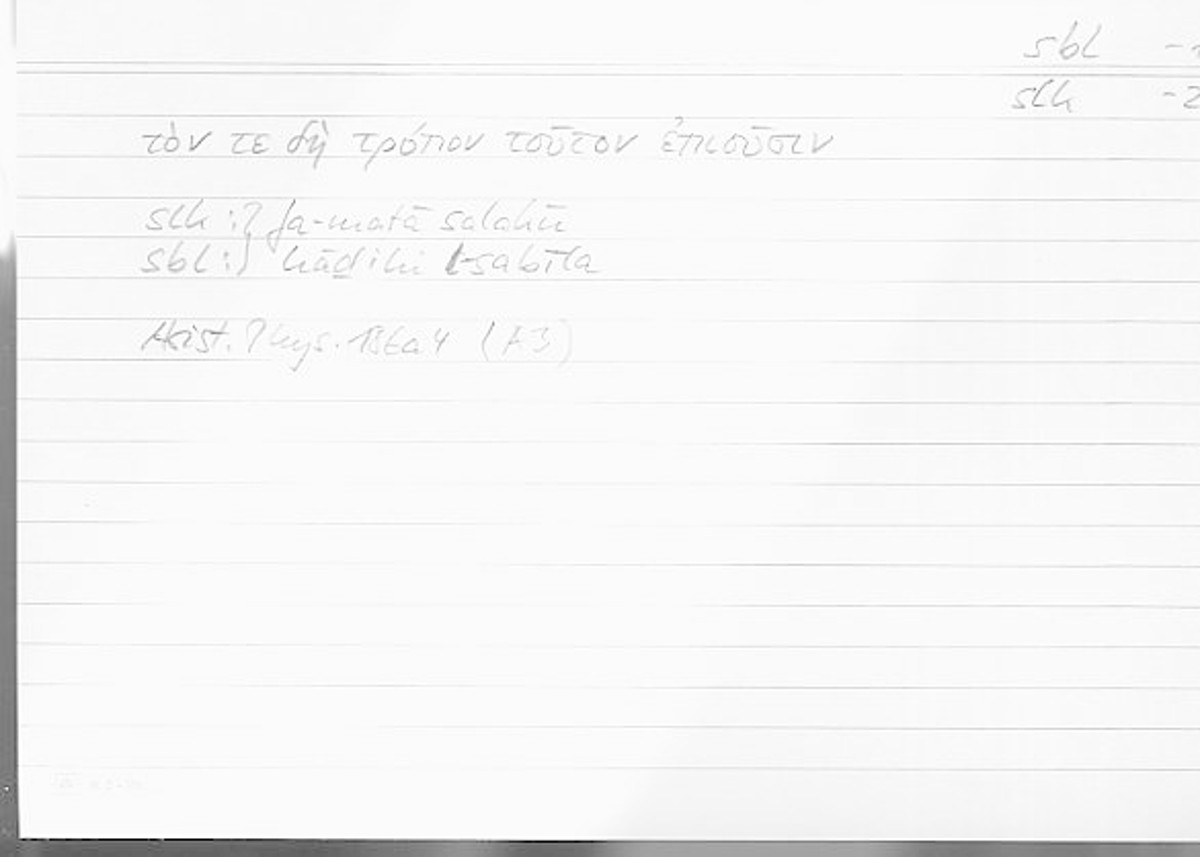 sbl -1
slk -2
τὸν τε δὴ τρόπον τοῦτον ἐπιοῦσιν
slk :} fa-matā salakū
sbl :} hādihi l-sabīla
Arist. Phys. 186a4 (A3)